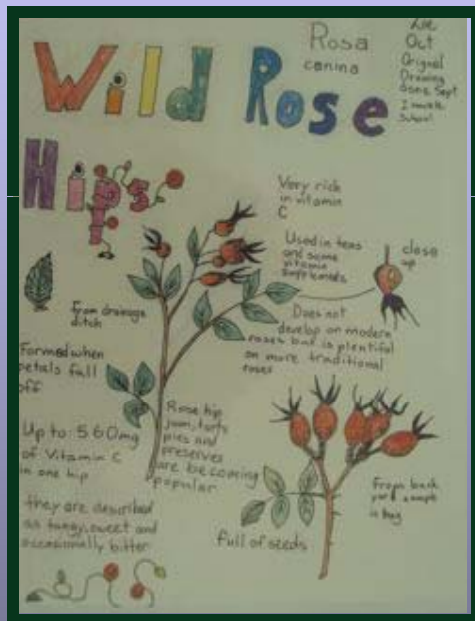 Wild Rose
Hips
Rosa
canina
Oct
Orignal
Drawing
done Sept
School
Very rich
in vitamin
C
Used in teas
and some
vitamin
supplements
close
up
Does not
develop on modern
roses but is plentiful
on more traditional
roses
from drainage
ditch
Formed when
petals fall
off
Up to 560mg
of Vitamin C
in one hip
they are described
as tangy, sweet and
occasionally bitter
Rose hip
jam, tarts
pies and
preserves
are becoming
popular
full of seeds
From back
yard sample
in bag